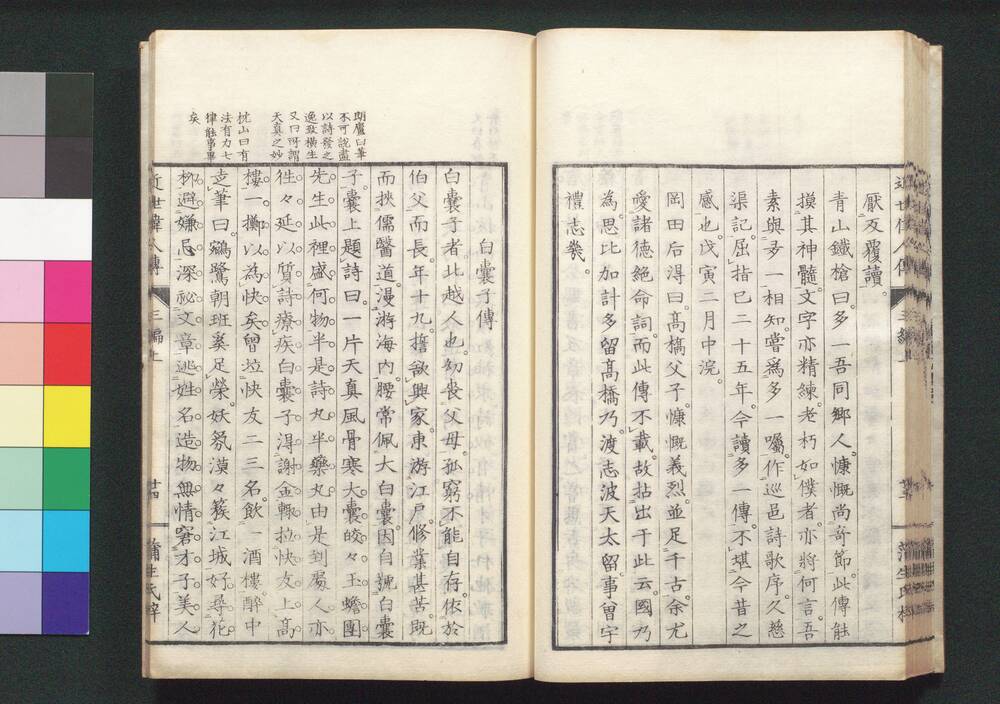 厭反覆讀。
青山鐵槍曰。多一吾同鄉人。慷慨尚奇節。此傳能
摸其神髓。文字亦精練。老朽如僕者。亦將何言。吾
素與多一相知。嘗爲多一囑。作巡邑詩歌序。久慈
渠記。屈指已二十五年。今讀多一傳。不堪今昔之
感也。戊寅二月中浣。
岡田后得曰。高橋父子。慷慨義烈。並足千古。余尤
愛諸德絕命詞。而此傳不載。故拈出于此云。國乃
為。思比加計多留高橋乃。渡志波天太留事曾宇
禮志幾。
白囊子傳
白囊子者。北越人也。幼喪父母。孤窮不能自存。依於
伯父而長。年十九。擔欲興家。東游江戶。修業甚苦。既
而挾儒醫道。漫游海内。腰常佩大白囊。因自號白囊
子。囊上題詩曰。一片天真風骨寒。大囊皎々玉蟾團
先生此裡盛何物。半是詩丸半藥丸。由是到處人亦
徃々延以質詩療疾。白囊子得謝金輙拉快友上高
樓一擲以為快矣。曾拉快友二三名。飲一酒樓。醉中
走筆曰。鵷鷺朝班奚足榮。妖氛漠々簇江城。好尋花
柳避嫌忌。深祕文章逃姓名。造物無情窘才子。美人
朗廬曰筆
不可說盡
以詩發之
逸致橫生
又曰所謂
天真之妙
枕山曰有
法有力七
律能事畢
矣
近世偉人傳
三編上
廿四
蒲生氏梓